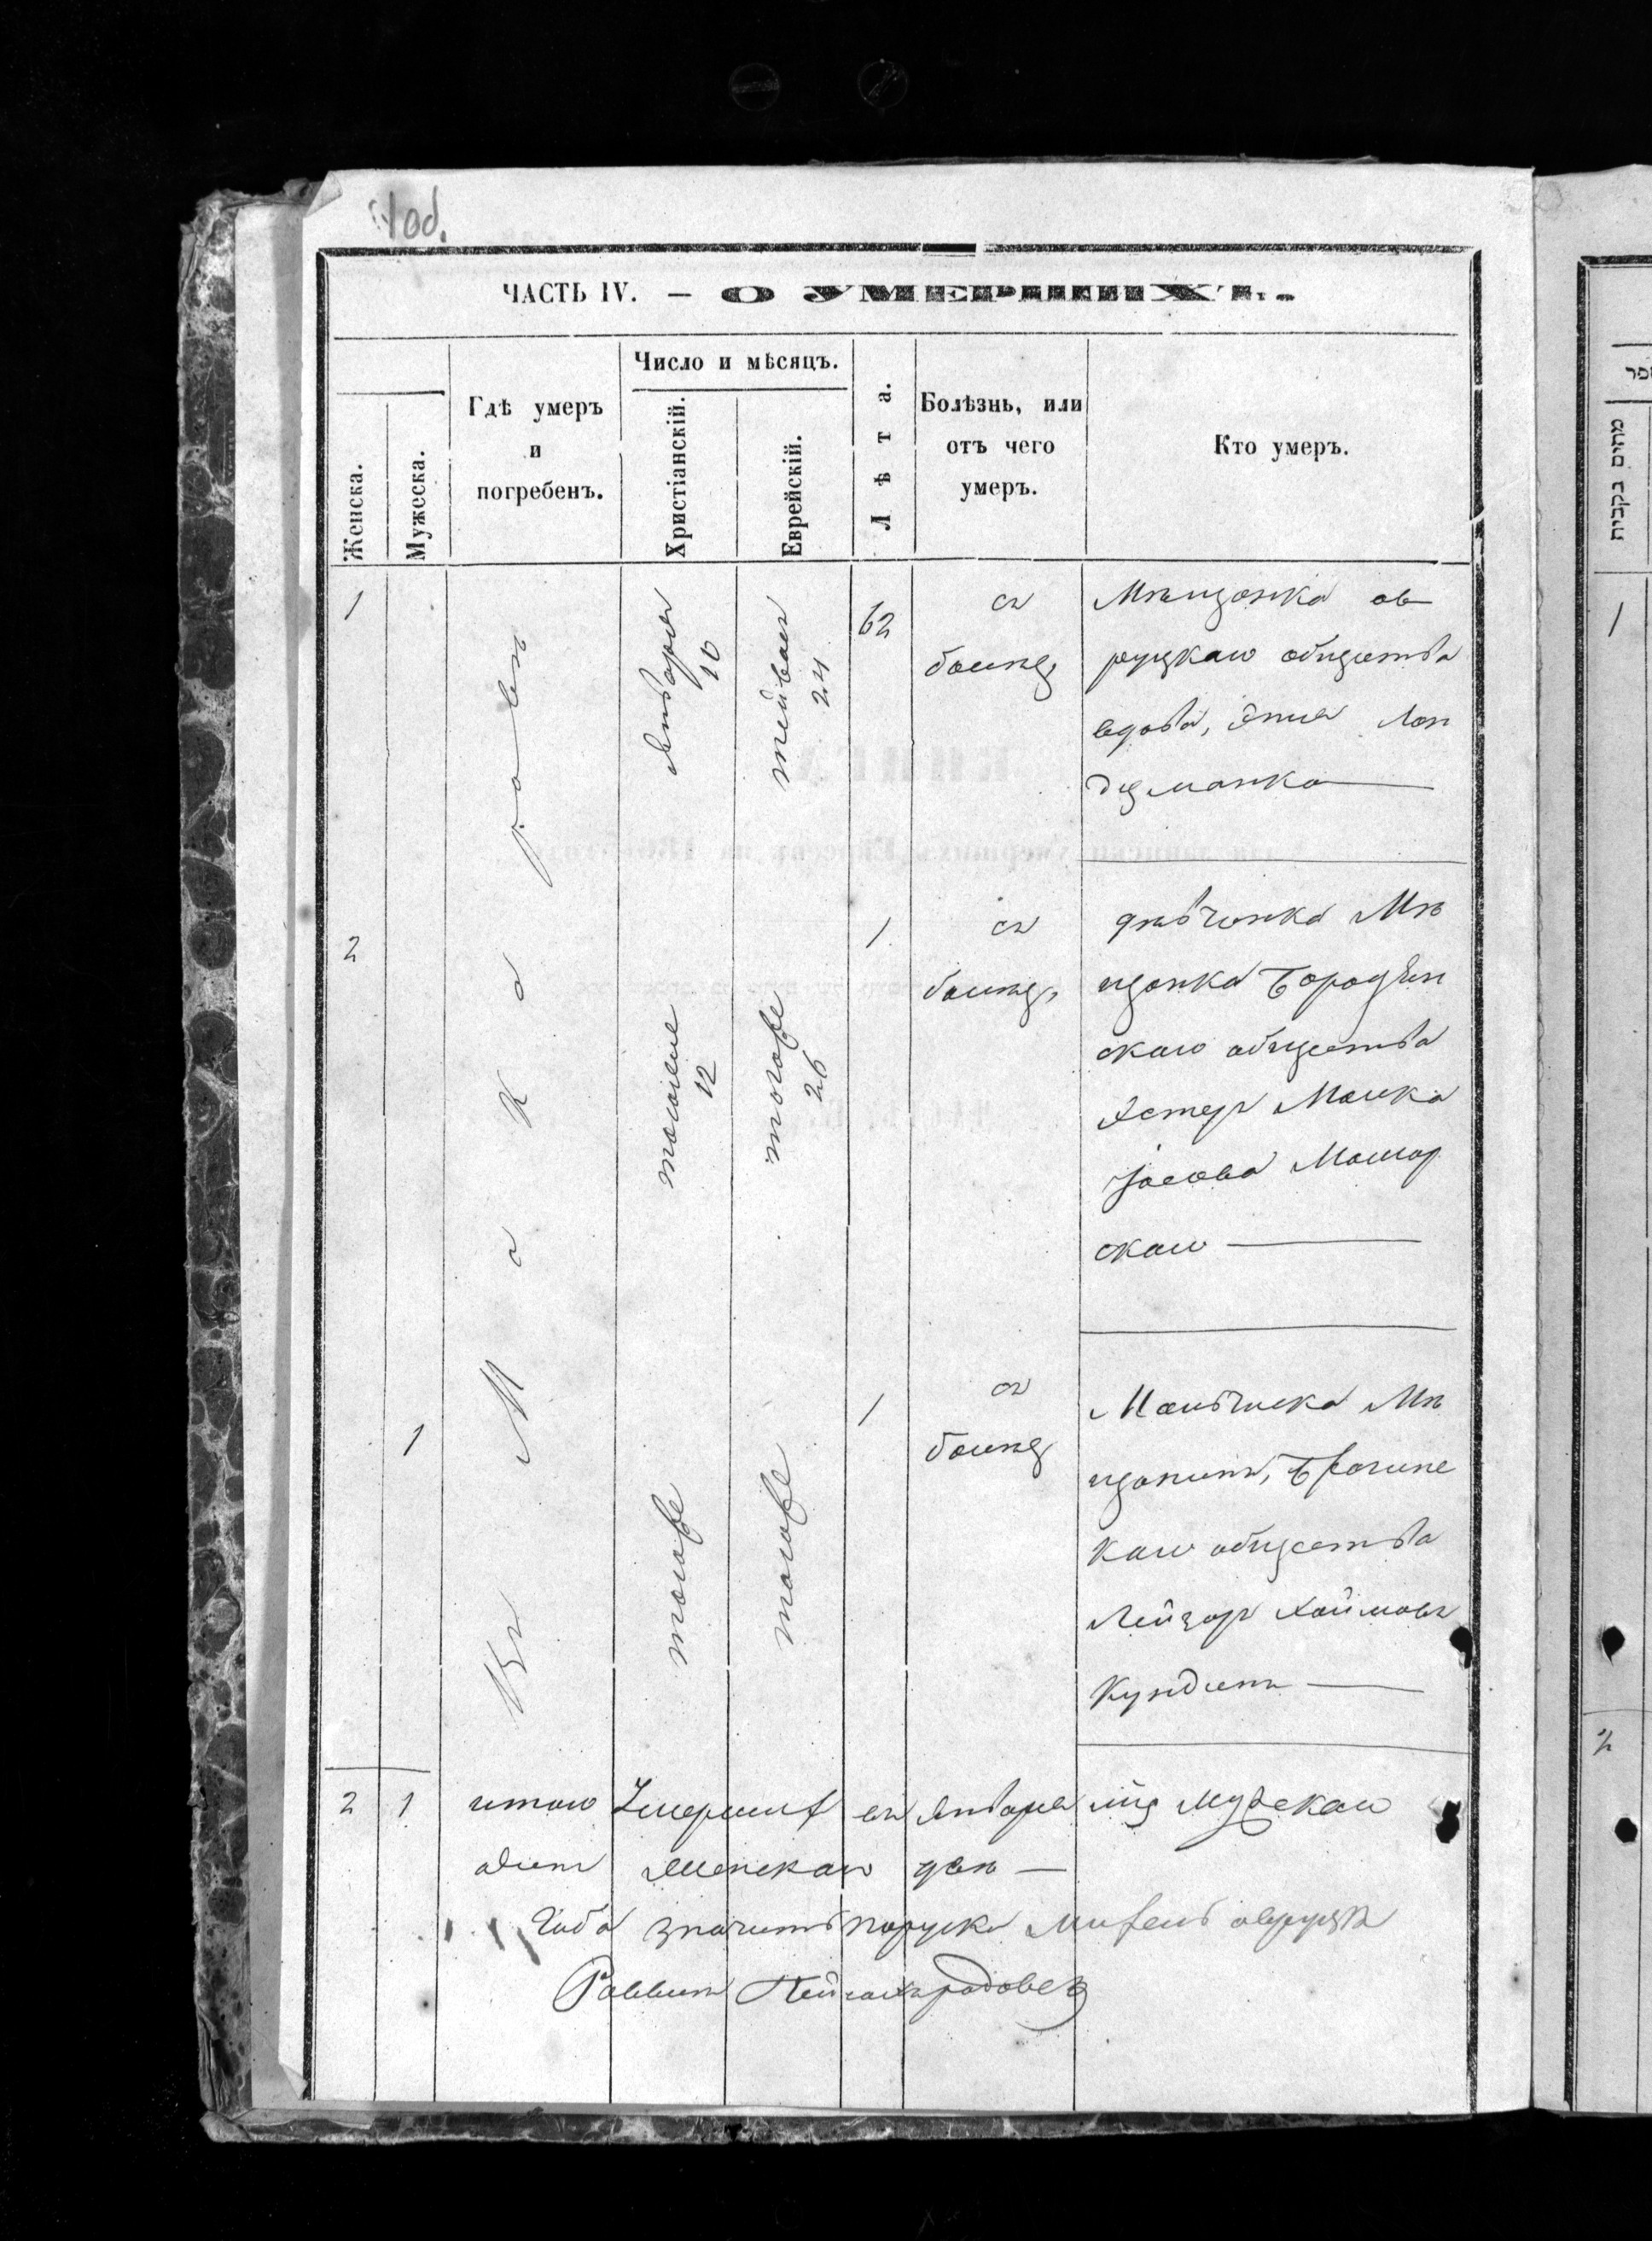 1об.
ЧАСТЬ IV. — О УМЕРШИХЪ.
Женска.
Мужеска.
Гдѣ умеръ
и
погребенъ.
Число и мѣсяцъ.
Христіанскій.
Еврейскій.
Лѣта.
Болѣзнь, или
отъ чего
умеръ.
Кто умеръ.
Въ Макаровѣ
1
Января
10
тейваса
24
62
съ
болезн.
Мѣщанка ов
руцкаго общества
вдова, Эпля Лон
дцманка
2
тогоже
12
тогоже
26
1
съ
болезн.
дѣвчонка Мѣ
щанка Бородян
скаго общества
Эстеръ Мошка
Іосева Мошор
скаго
1
тогоже
тогоже
1
съ
болезн.
Мальчика Мѣ
щанинъ, Брагинс
каго общества
Лейзоръ Хаймовъ
Кундинъ
2 1 итого Умершихъ въ Январѣ м-цѣ Мужескаго
одинъ Женскаго двѣ —
значитъ
Раввинъ
מתים
1
2